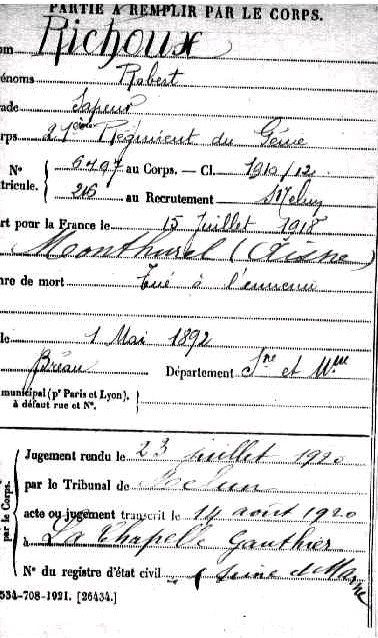 PARTIE A REMPLIR PAR LE CORPS.
om Richoux
énoms Robert
ade Sapeur
rps Régiment du Génie
N° 6497 au Corps. — Cl. 1910/12
tricule. 216 au Recrutement Melun
rt pour la France le 15 Juillet 1918
Monthurel (Aisne)
nre de mort Tué à l'ennemi
le 1 Mai 1892
Bréau Département Sne et Mne
municipal (pr Paris et Lyon).
à défaut rue et N°.
par le Corps.
Jugement rendu le 23 Juillet 1920
par le Tribunal de Melun
acte ou jugement transcrit le 14 août 1920
à La Chapelle Gauthier
N° du registre d'état civil (Seine et Marne
534-708-1921. [26434.]